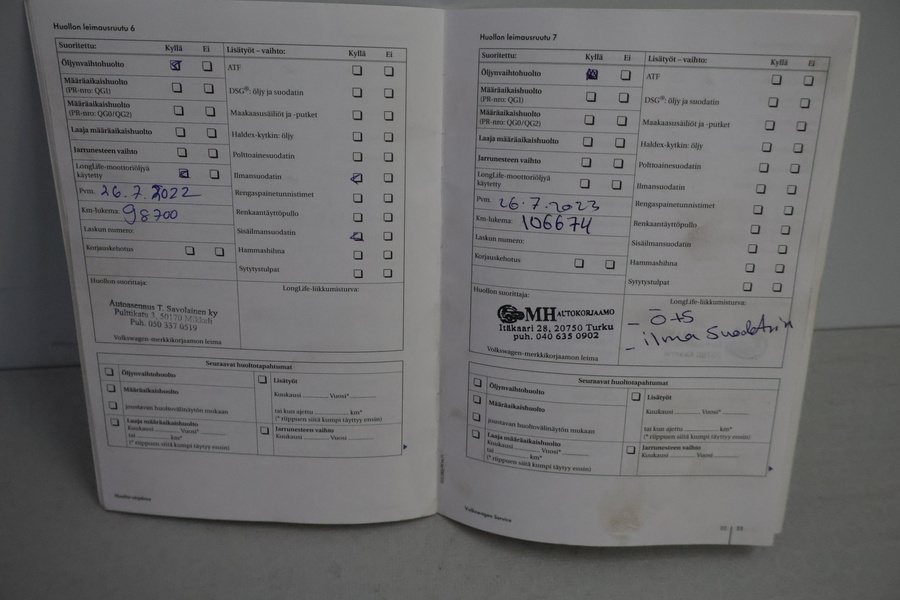 Huollon leimausruutu 6
Suoritettu: Kyllä Ei Lisätyöt – vaihto: Kyllä Ei
Öljynvaihtohuolto
ATF
Määräaikaishuolto
(PR-nro: QG1)
DSG®: öljy ja suodatin
Määräaikaishuolto
(PR-nro: QG0/QG2)
Maakaasusäiliöt ja -putket
Laaja määräaikaishuolto
Haldex-kytkin: öljy
Jarrunesteen vaihto
Polttoainesuodatin
LongLife-moottoriöljyä
käytetty
Ilmansuodatin
Pvm. 26.7.2022
Rengaspainetunnistimet
Km-lukema: 98700
Renkaantäyttöpullo
Laskun numero:
Sisäilmansuodatin
Korjauskehotus
Hammashihna
Sytytystulpat
Huollon suorittaja:
LongLife-liikkumisturva:
Autoasennus T. Savolainen ky
Pulttikatu 3, 50170 Mikkeli
Puh. 050 337 0519
Volkswagen-merkkikorjaamon leima
Seuraavat huoltotapahtumat
Öljynvaihtohuolto
Lisätyöt
Määräaikaishuolto
Kuukausi Vuosi*
joustavan huoltovälinäytön mukaan
tai kun ajettu km*
(* riippuen siitä kumpi täyttyy ensin)
Laaja määräaikaishuolto
Kuukausi Vuosi*
tai km*
(* riippuen siitä kumpi täyttyy ensin)
Jarrunesteen vaihto
Kuukausi Vuosi
Huolto-ohjelma
Huollon leimausruutu 7
Suoritettu: Kyllä Ei Lisätyöt – vaihto: Kyllä Ei
Öljynvaihtohuolto
ATF
Määräaikaishuolto
(PR-nro: QG1)
DSG®: öljy ja suodatin
Määräaikaishuolto
(PR-nro: QG0/QG2)
Maakaasusäiliöt ja -putket
Laaja määräaikaishuolto
Haldex-kytkin: öljy
Jarrunesteen vaihto
Polttoainesuodatin
LongLife-moottoriöljyä
käytetty
Ilmansuodatin
Pvm. 26.7.2023
Rengaspainetunnistimet
Km-lukema: 106674
Renkaantäyttöpullo
Laskun numero:
Sisäilmansuodatin
Korjauskehotus
Hammashihna
Sytytystulpat
Huollon suorittaja:
LongLife-liikkumisturva:
MH AUTOKORJAAMO
Itäkaari 28, 20750 Turku
puh. 040 635 0902
- Ö+S
- ilma suodatin
Volkswagen-merkkikorjaamon leima
Seuraavat huoltotapahtumat
Öljynvaihtohuolto
Lisätyöt
Määräaikaishuolto
Kuukausi Vuosi*
joustavan huoltovälinäytön mukaan
tai kun ajettu km*
(* riippuen siitä kumpi täyttyy ensin)
Laaja määräaikaishuolto
Kuukausi Vuosi*
tai km*
(* riippuen siitä kumpi täyttyy ensin)
Jarrunesteen vaihto
Kuukausi Vuosi
Volkswagen Service